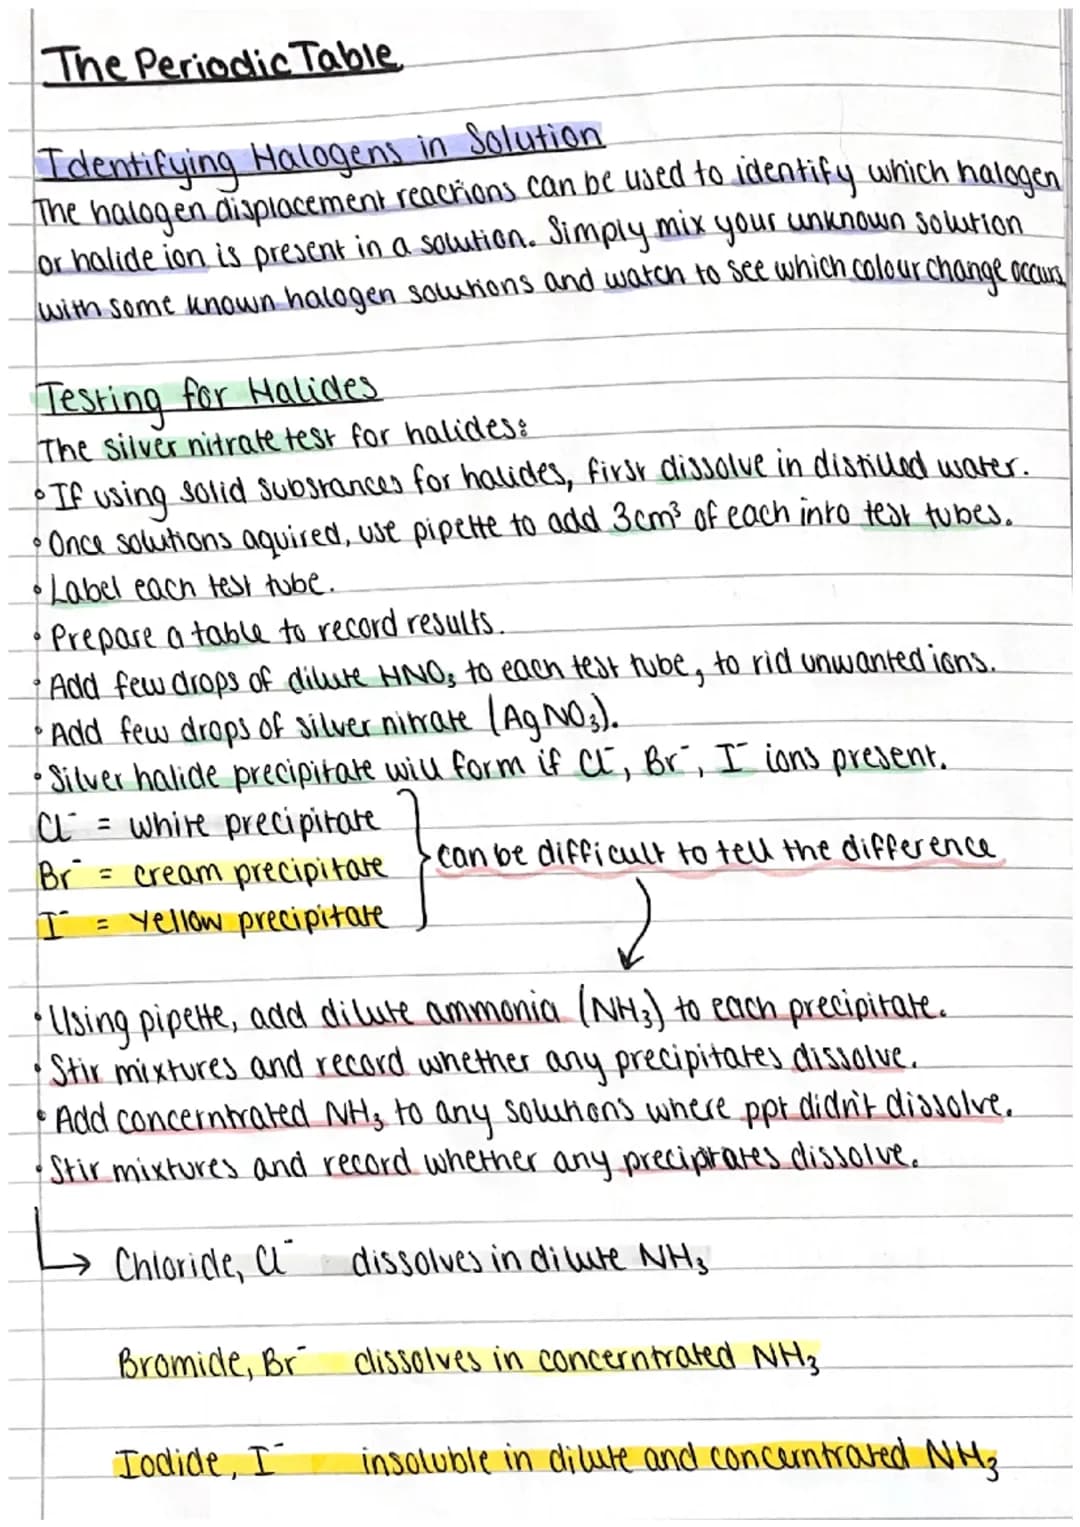 The Periodic Table
Identifying Halogens in Solution
The halogen displacement reactions can be used to identify which halogen
or halide ion is present in a solution. Simply mix your unknown solution
with some known halogen solutions and watch to see which colour change occurs.
Testing for Halides
The silver nitrate test for halides:
• If using solid substances for halides, first dissolve in distilled water.
• Once solutions aquired, use pipette to add 3cm³ of each into test tubes.
• Label each test tube.
• Prepare a table to record results.
• Add few drops of dilute HNO₃ to each test tube, to rid unwanted ions.
• Add few drops of silver nitrate (AgNO₃).
• Silver halide precipitate will form if Cl⁻, Br⁻, I⁻ ions present.
Cl⁻ = white precipitate
Br⁻ = cream precipitate
I⁻ = yellow precipitate
can be difficult to tell the difference
• Using pipette, add dilute ammonia (NH₃) to each precipitate.
• Stir mixtures and record whether any precipitates dissolve.
• Add concerntrated NH₃ to any solutions where ppt didn't dissolve.
• Stir mixtures and record whether any precipitates dissolve.
→ Chloride, Cl⁻ dissolves in dilute NH₃
Bromide, Br⁻ dissolves in concerntrated NH₃
Iodide, I⁻ insoluble in dilute and concerntrated NH₃